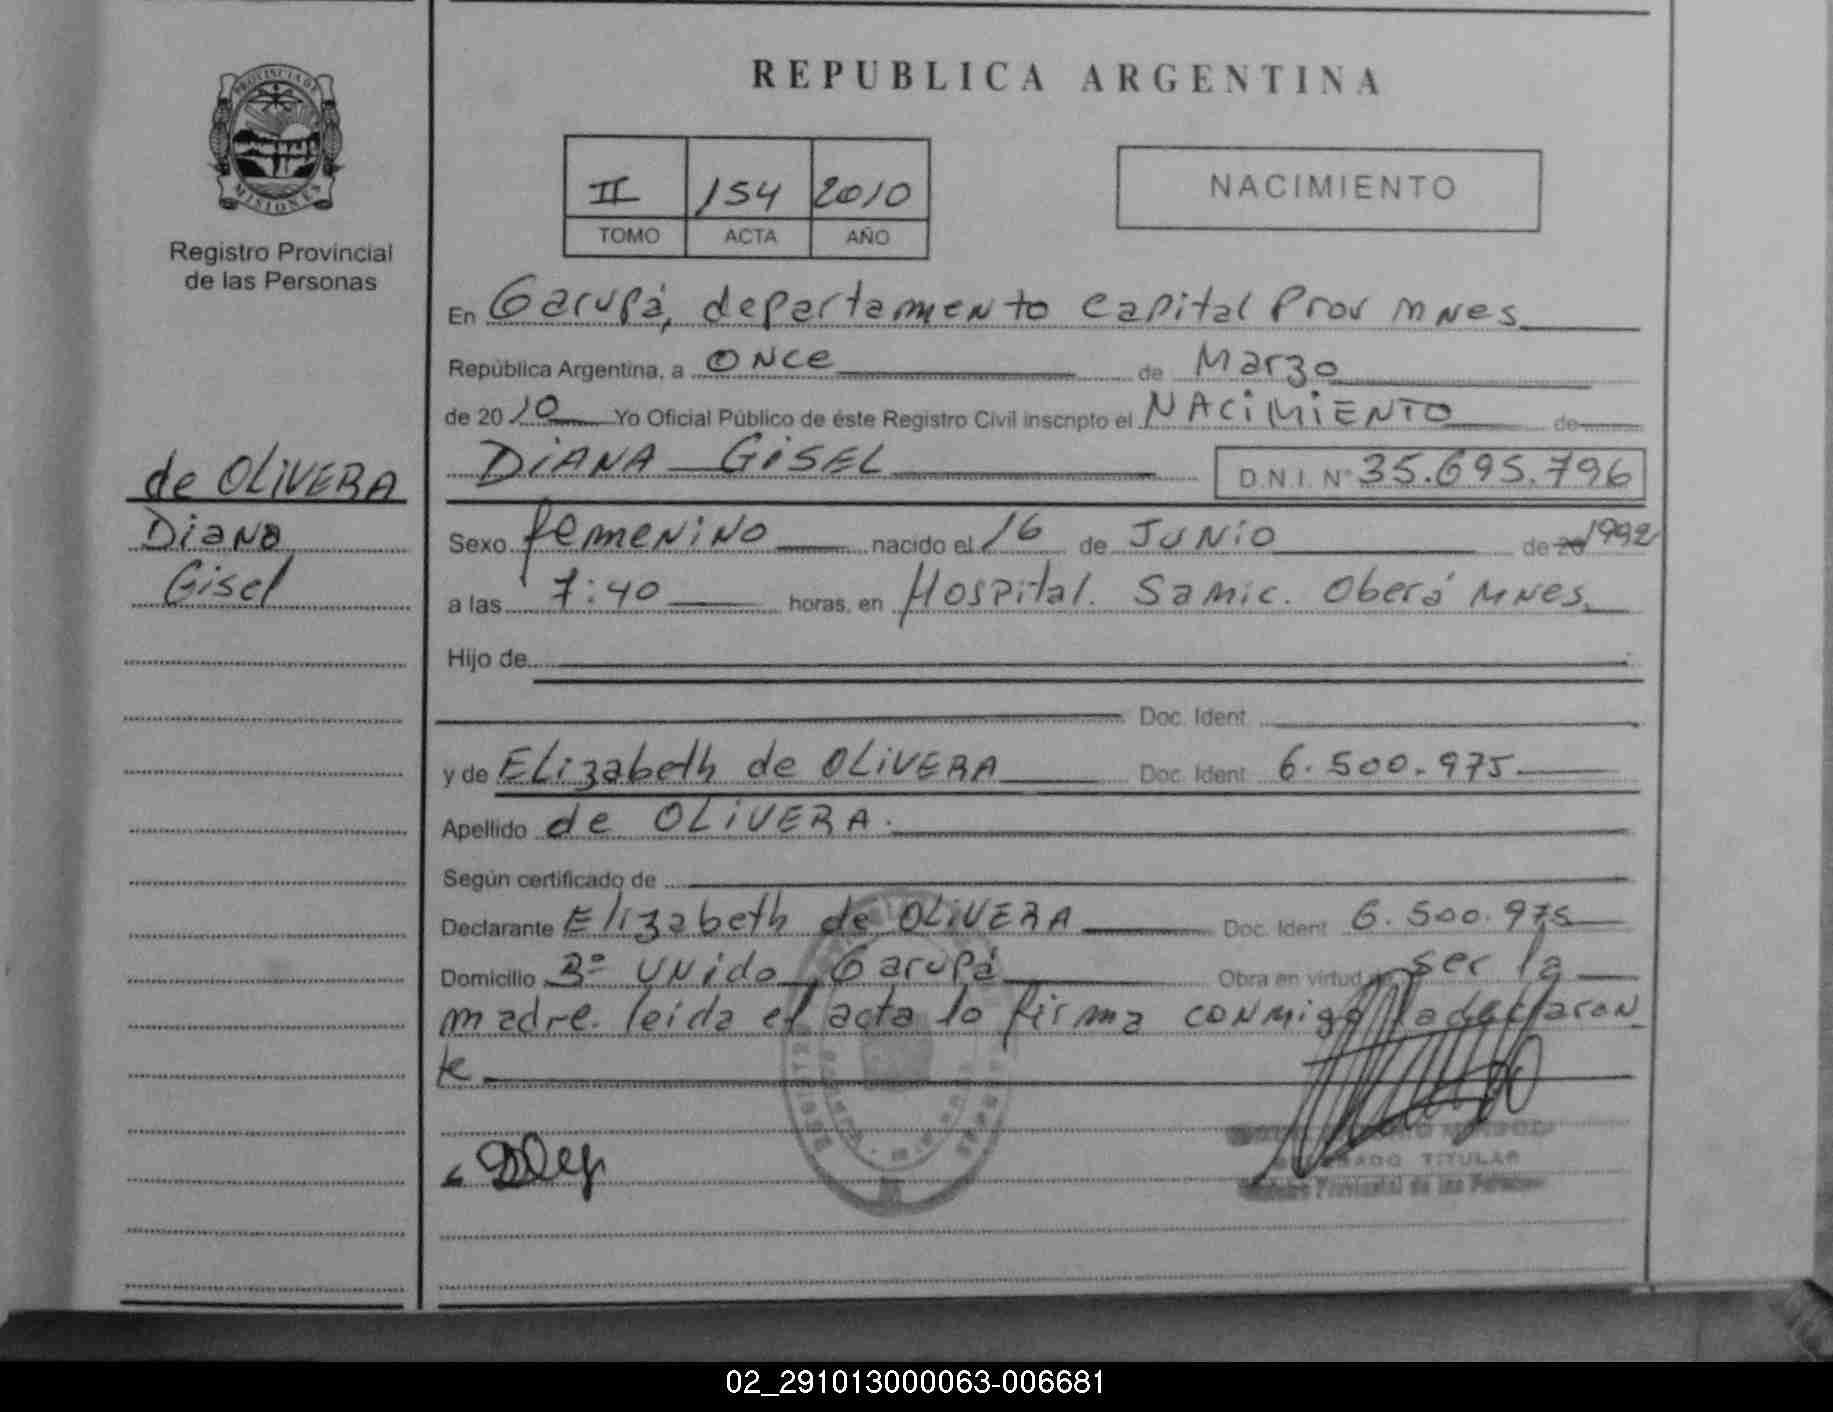 REPUBLICA ARGENTINA
PROVINCIA DE
MISIONES
Registro Provincial
de las Personas
II 154 2010
TOMO ACTA AÑO
NACIMIENTO
En Garupá, departamento Capital Prov Mnes
República Argentina, a ONce de Marzo
de 2010 Yo Oficial Público de éste Registro Civil inscripto el NACIMIENTO de
DIANA GISEL D.N.I. Nº 35.695.796
de OLIVERA
Diana
Gisel
Sexo femenino nacido el 16 de Junio de 20 1992
a las 7:40 horas, en Hospital. Samic. Oberá Mnes.
Hijo de
Doc. Ident
y de Elizabeth de OLIVERA Doc. Ident 6.500.975
Apellido de OLIVERA.
Según certificado de
Declarante Elizabeth de OLIVERA Doc. Ident 6.500.975
Domicilio Bº Unido Garupá Obra en virtud ser la
madre. leida el acta lo firma conmigo la declaran
te
TITULAR
Provincial de las Personas
02_291013000063-006681